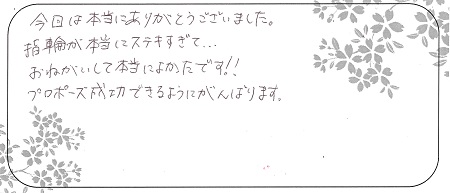 今日は本当にありがとうございました。
指輪が本当にステキすぎて...
おねがいして本当によかたです!!
プロポーズ成功できるようにがんばります。